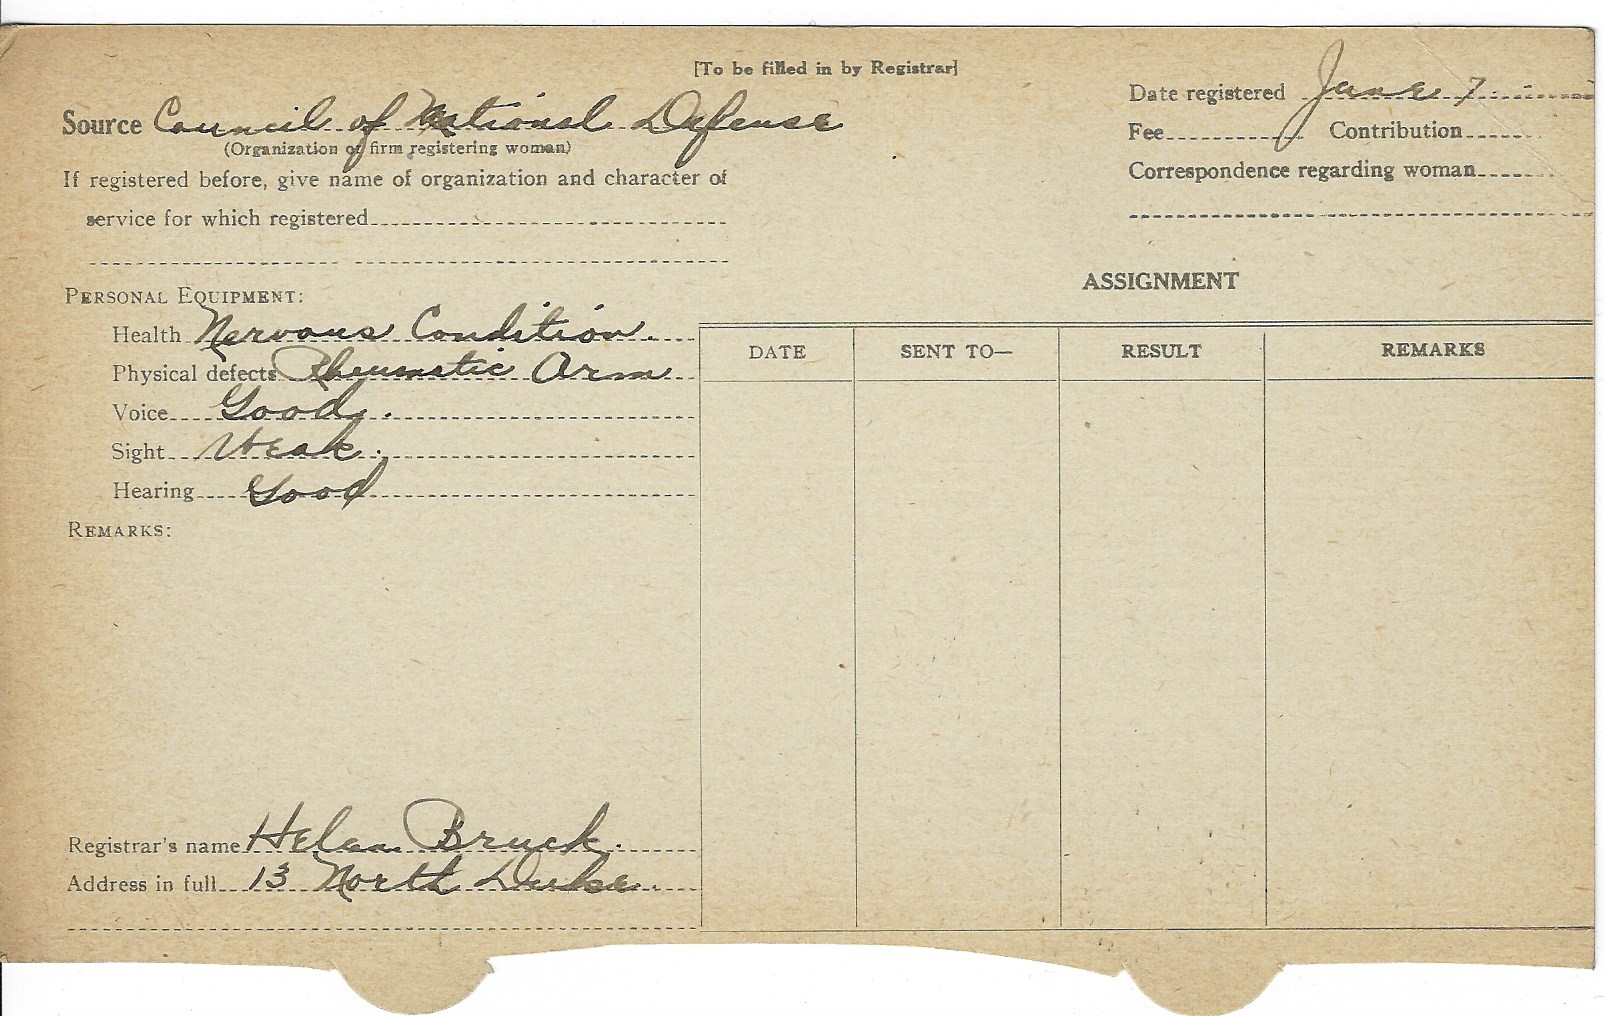 [To be filled in by Registrar]
Date registered June 7
Source Council of National Defense
(Organization or firm registering woman)
Fee Contribution
If registered before, give name of organization and character of
Correspondence regarding woman
service for which registered
ASSIGNMENT
PERSONAL EQUIPMENT:
Health Nervous Condition.
Physical defects Rheumatic Arm
Voice Good.
Sight Weak.
Hearing Good
REMARKS:
DATE SENT TO— RESULT REMARKS
Registrar's name Helen Bruck.
Address in full 13 North Duke.